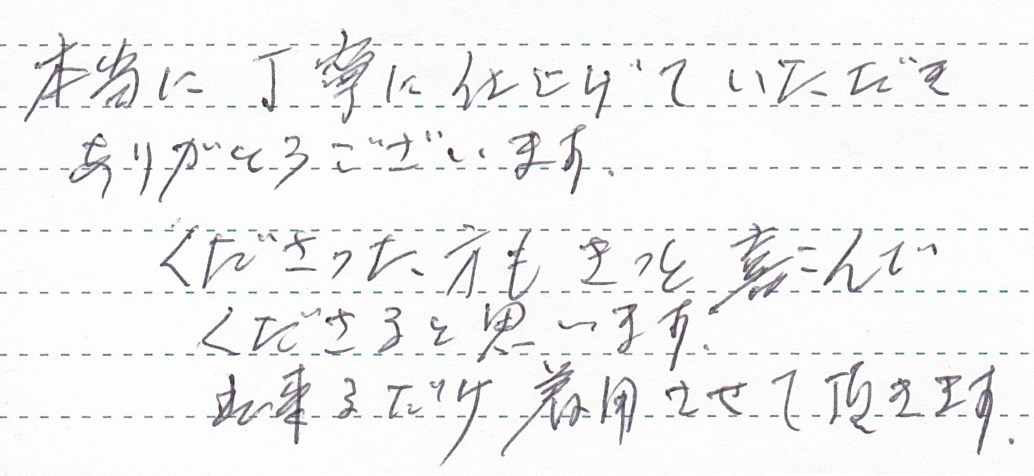 本当に丁寧に仕上げていただき
ありがとうございます.
くださった方もきっと喜こんで
くださると思います.
出来るだけ着用させて頂きます.